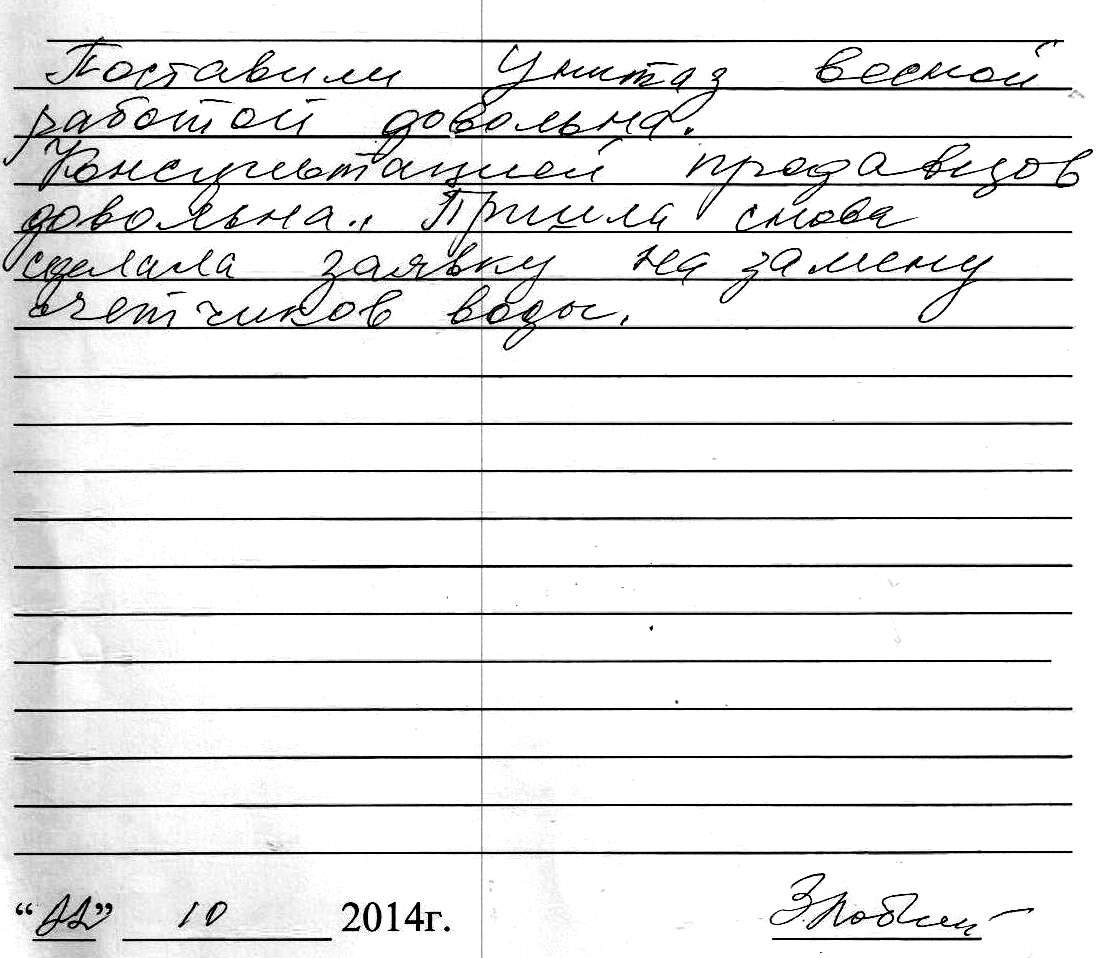 Поставили Унитаз весной
работой довольна.
Консультацией продавцов
довольна. Пришла снова
сделала заявку на замену
счетчиков воды.
“22” 10 2014г.